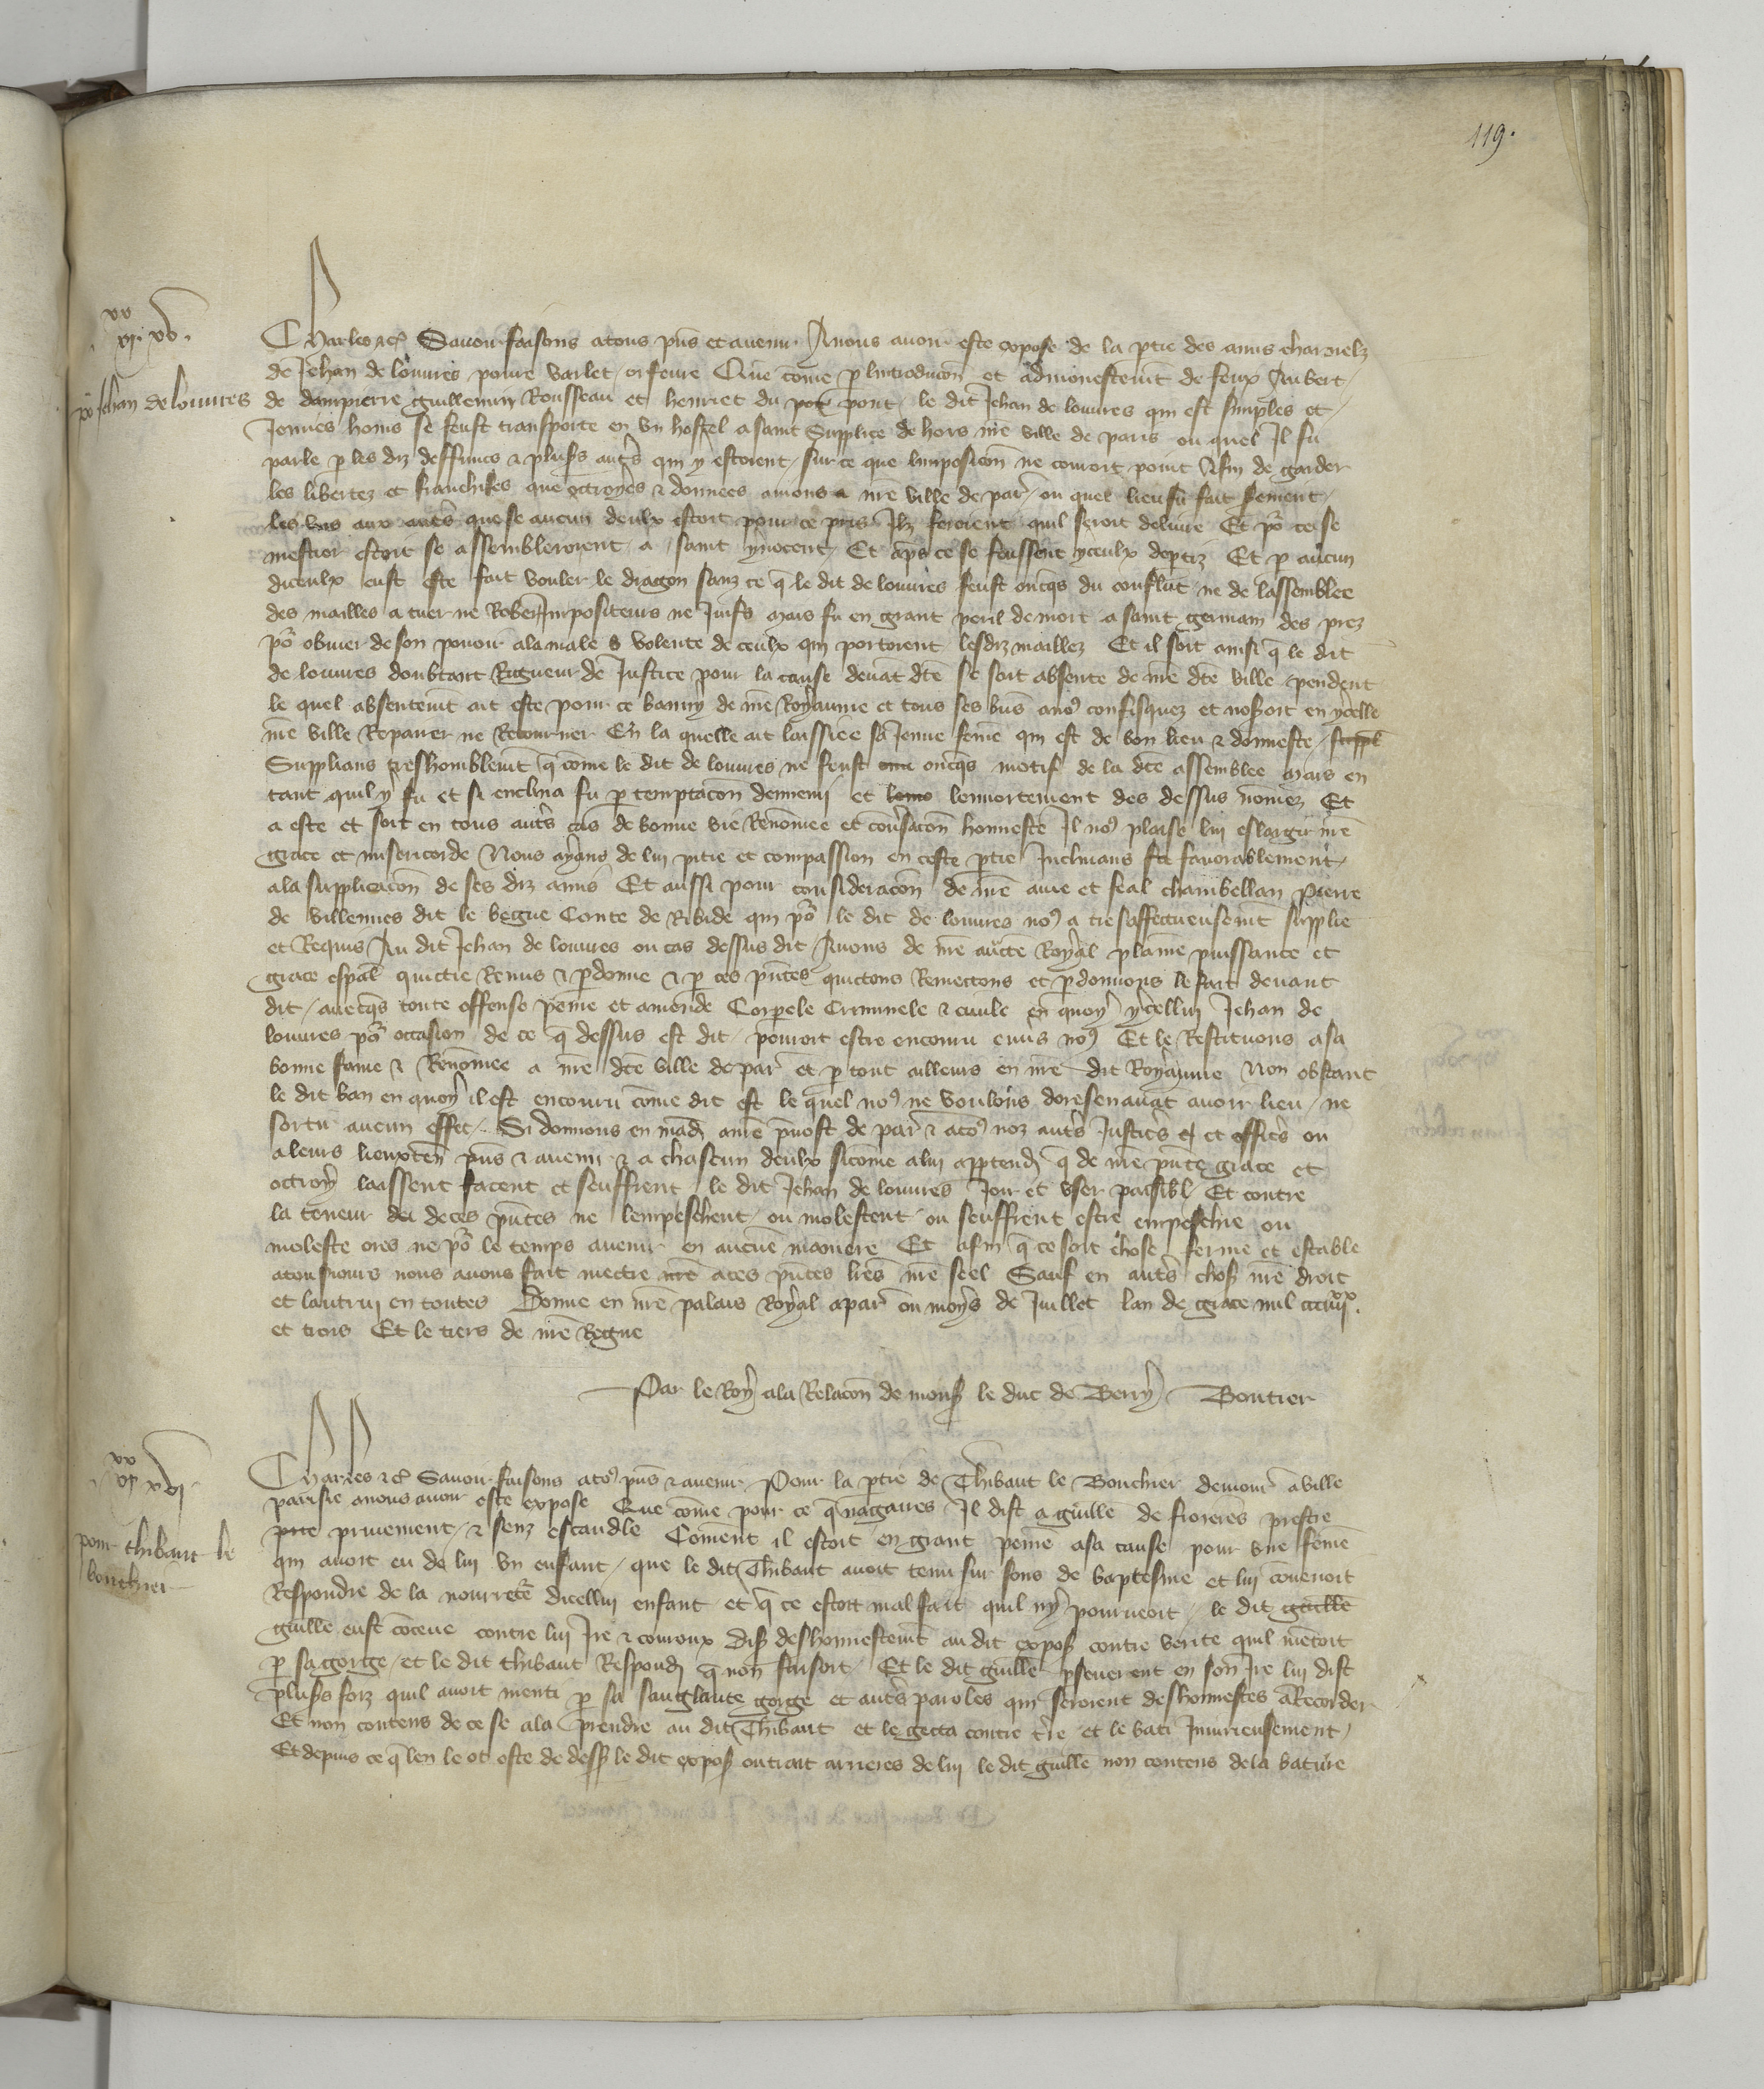 119.
xx
vi. xv.
po Jehan de louvres
Charles etc Savoir faisons a tous pns et avenir A nous avoir este expose de la ptie des amis charnelz
de Jehan de louvres povre varlet orfevre Que come p lintroducon et admonestemt de feux Aubert
de dampierre guillemin Rousseau et henriet du pot pont le dit Jehan de louvres qui est simples et
Jeunes homs se feust transporte en un hostel a saint Supplice de hors nre ville de paris ou quel Il fu
parle p les diz deffuncs & pluss autrs qui y estoient sur ce que limposicon ne couroit point Afin de garder
les libertez et franchises que octroyes & donnees avions a nre ville de par ou quel lieu fu fait serment
les uns aux autrs que se aucun deulx estoit pour ce pris Ilz feroient quil seroit delivre Et po ce se
mestier estoit se assembleroient a saint ynnocent Et aps ce se feussent yceulx deptiz Et p aucun
diceulx eust este fait vouler le dragon sanz ce q le dit de louvres feust oncqs du conflict ne de lassemblee
des mailles a tuer ne Rober Impositeurs ne Juifs mais fu en grant peril de mort a saint germain des prez
po obvier de son povoir a la male volente de ceulx qui portoient lesdiz maillez Et il soit ainsi q le dit
de louvres doubtant Rigueur de Justice pour la cause devat dte se soit absente de nre dte ville pendent
le quel absentemt ait este pour ce banny de nre Royaume et tous ses bns a no9 confisquez et nosoit en ycelle
nre ville Repairer ne Retourner En la quelle ait laissiee sa Jeune feme qui est de bon lieu & donneste suppl
Supplians treshumblemt q come le dit de louvres ne feust onc oncqs motif de la dte assemblee mais en
tant quil y fu et si enclina fu p temptacon dennemi et lenortement des dessus nomez Et
a este et soit en tous autrs cas de bonne vie Renomee et consacon honneste Il no9 plaise lui eslargir nre
grace et misericorde Nous ayans de lui pitie et compassion en ceste ptie Inclinans favorablement
a la supplicacon de ses diz amis Et aussi pour consideracon de nre ame et feal chambellan Pierre
de villennes dit le begue Conte de Ribide qui po le dit de louvres no9 a tresaffectueusemt supplie
et Requis Au dit Jehan de louvres ou cas dessus dit Avons de nre aucte Royal plaine puissance et
grace espal quictie Remis & pdonne & p ces pntes quictons Remectons et pdonnons le fait devant
dit avecqs toute offense peine et amende Corpele Criminele & civile en quoy ycellui Jehan de
louvres po occasion de ce q dessus est dit pourroit estre encouru envs no9 Et le Restituons a sa
bonne fame & Renomee a nre dte ville de par et p tout ailleurs en nre dit Royaume Non obstant
le dit ban en quoy il est encouru come dit est le quel no9 ne voulons doresenavat avoir lieu ne
sortir aucun effet Si donnons en mand au pvost de par & a to9 noz autrs Justicrs et officrs ou
a leurs lieuxten pns & avenir & a chascun deulx sicome a lui apptend q de nre pnte grace et
octroy laissent facent et seuffrent le dit Jehan de louvres Joir et user paisibl Et contre
la teneur de ces pntes ne lempeschent ou molestent ou seuffrent estre empeschie ou
moleste ores ne po le temps avenir en aucue maniere Et afin q ce soit chose ferme et estable
a tousjours nous avons fait mectre a ces pntes lres nre seel Sauf en autrs chos nre droit
et lautrui en toutes Donne en nre palais Royal a par ou moys de Juillet lan de grace mil ccciiiixx
et trois Et le tiers de nre Regne
Par le Roy a la Relacon de mons le duc de Berry Bontier
xx
vi xvi
pour thibaut le
bouchier
Charles etc Savoir faisons a to9 pns & avenir Pour la ptie de Thibaut le Bouchier demour a ville
parisie a nous avoir este expose Que come pour ce q nagaires Il dist a guille de fioreres prestre
privement & senz escandle Coment il estoit en grant peine a sa cause pour une feme
qui avoit eu de lui un enfant que le dit Thibaut avoit tenu sur fons de baptesme et lui covenoit
Respondre de la nourreture dicellui enfant et q ce estoit mal fait quil ny pourveoit le dit guille
guille eust coceue contre lui Ire & couroux dist deshonnestemt au dit expos contre verite quil metoit
p sa gorge et le dit thibaut Respond q non faisoit Et le dit guille pseverent en son Ire lui dist
pluss foiz quil avoit menti p sa sanglante gorge et autrs paroles qui seroient deshonnestes a Recorder
Et non contens de ce se ala prendre au dit Thibaut et le gecta contre tre et le bati Injurieusement
Et depuis ce q len le ot oste de dess le dit expos on trait arrieres de lui le dit guille non contens de la bature